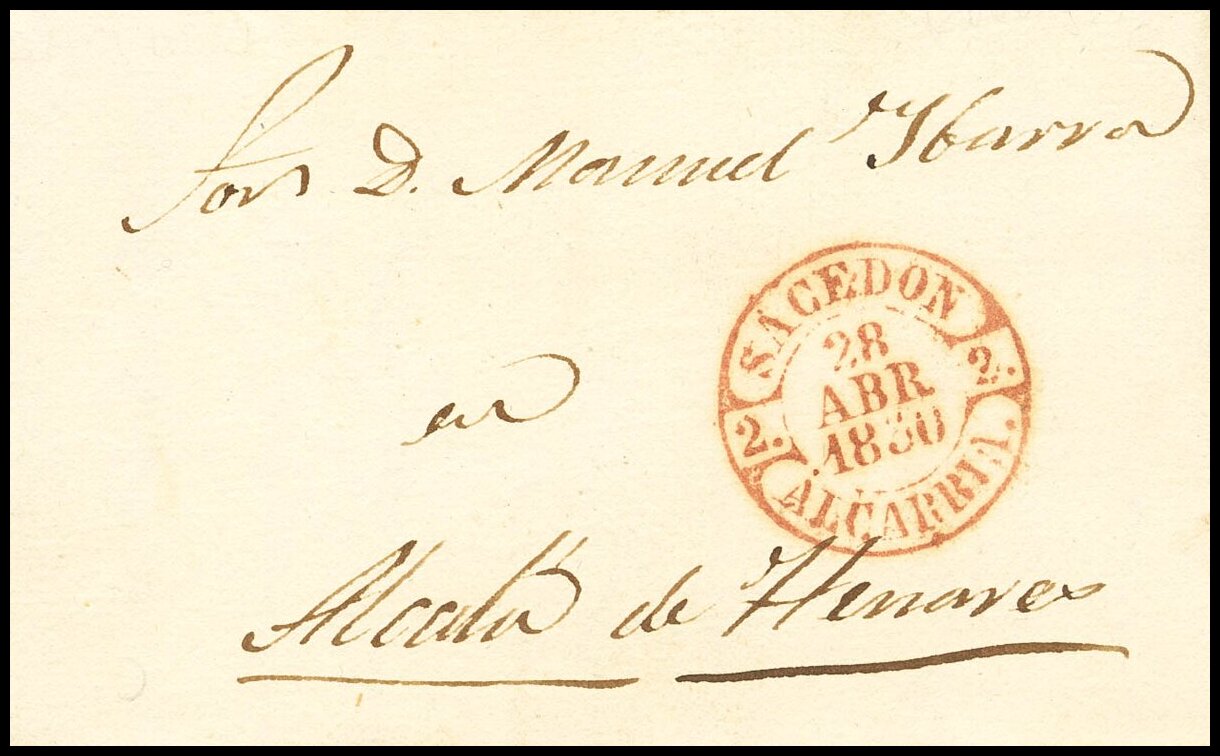 Sor D. Manuel Ybarra
SACEDON
2.
2.
28
ABR
ALCARRIA.
en
Alcalá de Henares